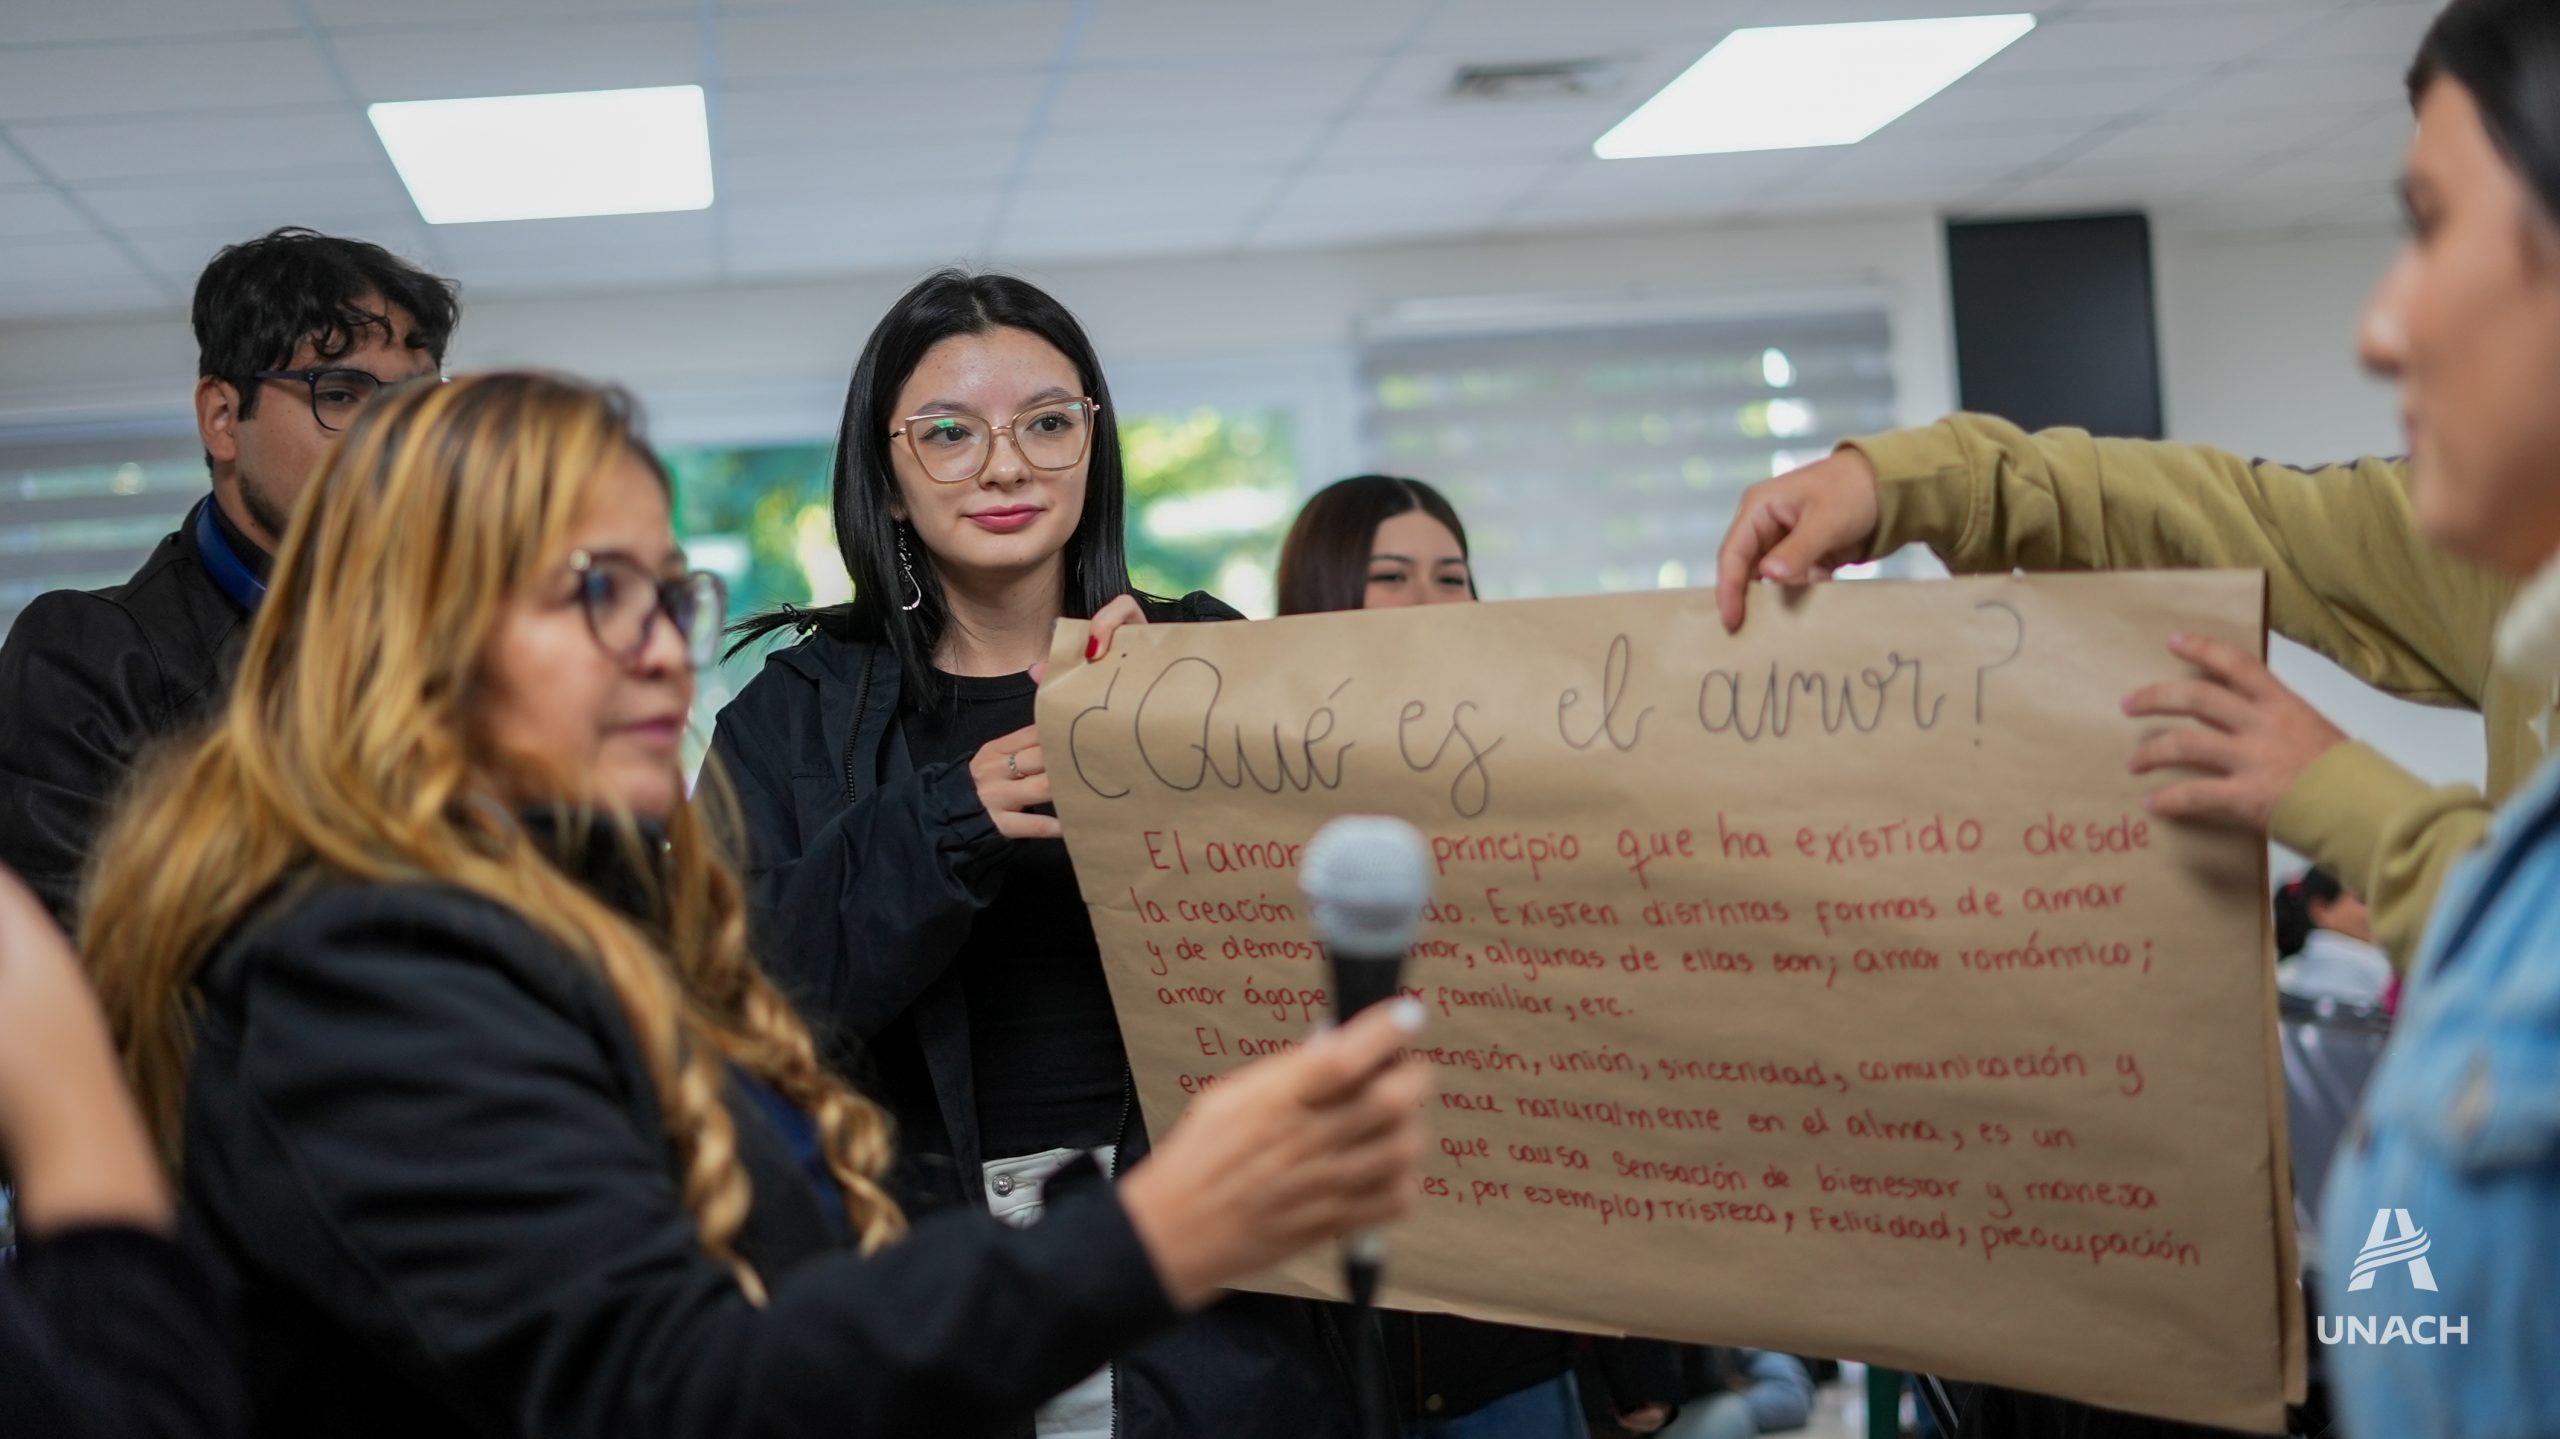 ¿Qué es el amor?
El amor principio que ha existido desde
la creación do. Existen distintas formas de amar
y de demost mor, algunas de ellas son; amor romántico;
amor ágape or familiar, etc.
El amo mprensión, unión, sinceridad, comunicación y
em nace naturalmente en el alma, es un
que causa sensación de bienestar y maneja
es, por ejemplo, tristeza, felicidad, preocupación
UNACH